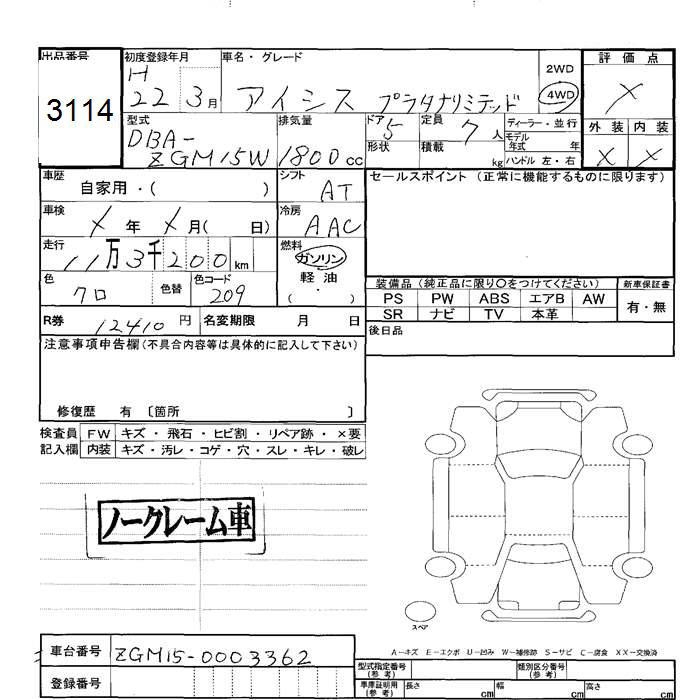 出品番号
3114
初度登録年月
H
22 3月
車名・グレード
アイシス プラタナリミテッド
2WD
4WD
評価点
X
外装 内装
X X
型式
DBA-
ZGM15W
排気量
1800 cc
ドア 5
形状
定員 7 人
積載 kg
ディーラー・並行
モデル
年式 年
ハンドル 左・右
車歴
自家用・( )
シフト
AT
車検
X 年 X 月( 日)
冷房
AAC
走行
11万3千200km
燃料
ガソリン
軽油
( ・ )
色
クロ
色替
色コード
209
R券 12410 円
名変期限 月 日
セールスポイント (正常に機能するものに限ります)
装備品 (純正品に限り○をつけてください)
新車保証書
PS PW ABS エアB AW
有・無
SR ナビ TV 本革
後日品
注意事項申告欄(不具合内容等は具体的に記入して下さい)
修復歴 有 〔箇所 〕
検査員 FW キズ・飛石・ヒビ割・リペア跡・×要
記入欄 内装 キズ・汚レ・コゲ・穴・スレ・キレ・破レ
ノークレーム車
スペア
A-キズ E-エクボ U-凹み W-補修跡 S-サビ C-腐食 XX-交換済
車台番号 ZGM15-0003362
登録番号
型式指定番号
(参考)
類別区分番号
(参考)
車庫証明用
(参考)
長さ cm 幅 cm 高さ cm